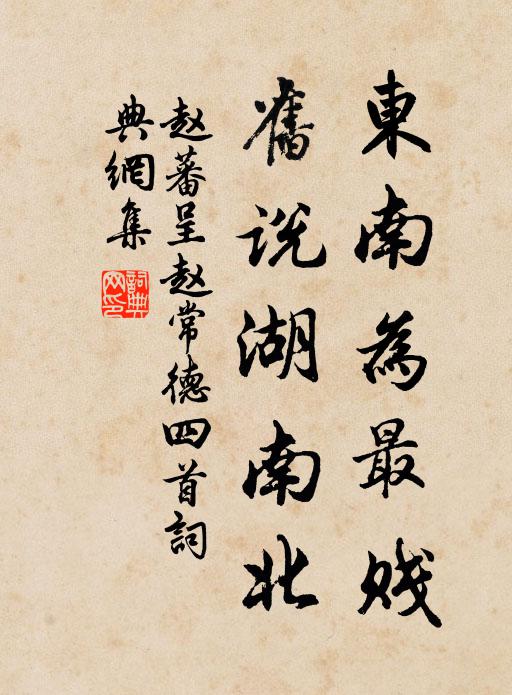 東南為最贱
舊説湖南北
赵蕃呈赵常德四首詞
典網集
詞典网印